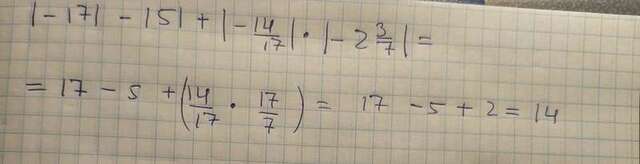 |-17| - |5| + |-14/17| · |-2 3/7| =
= 17 - 5 + (14/17 · 17/7) = 17 - 5 + 2 = 14